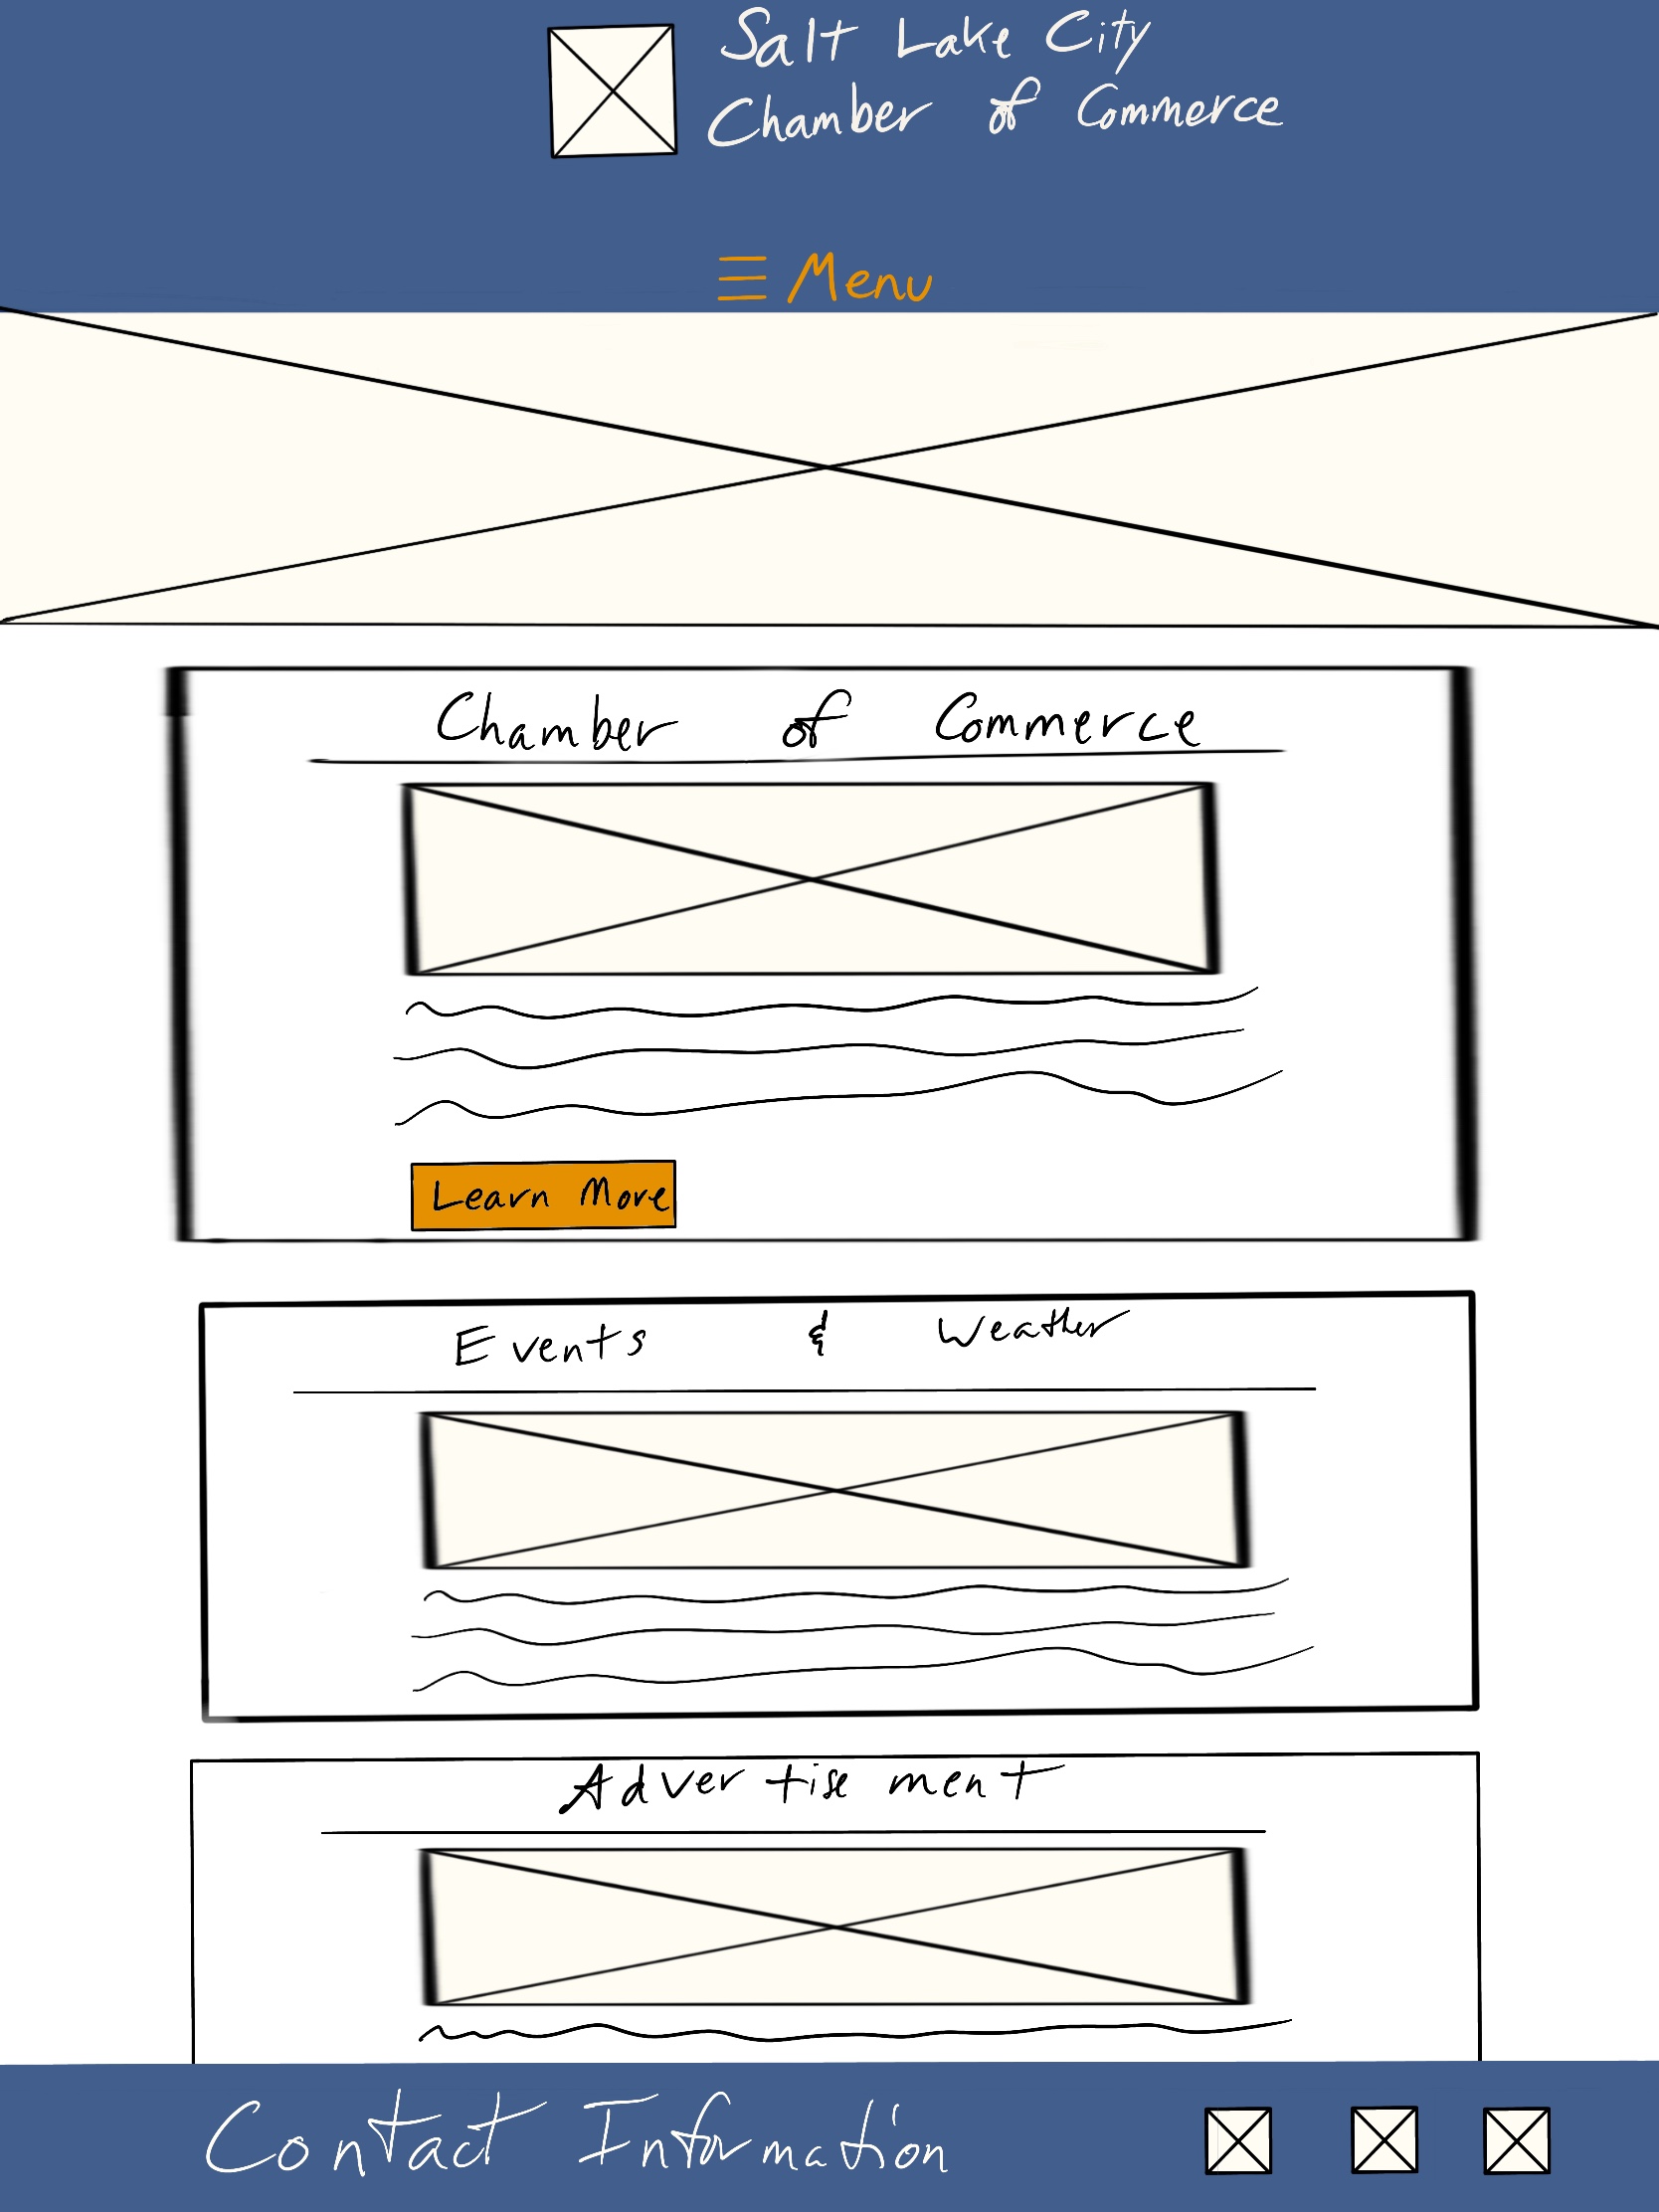 Salt Lake City
Chamber of Commerce
Menu
Chamber of Commerce
Learn More
Events & Weather
Advertisement
Contact Information